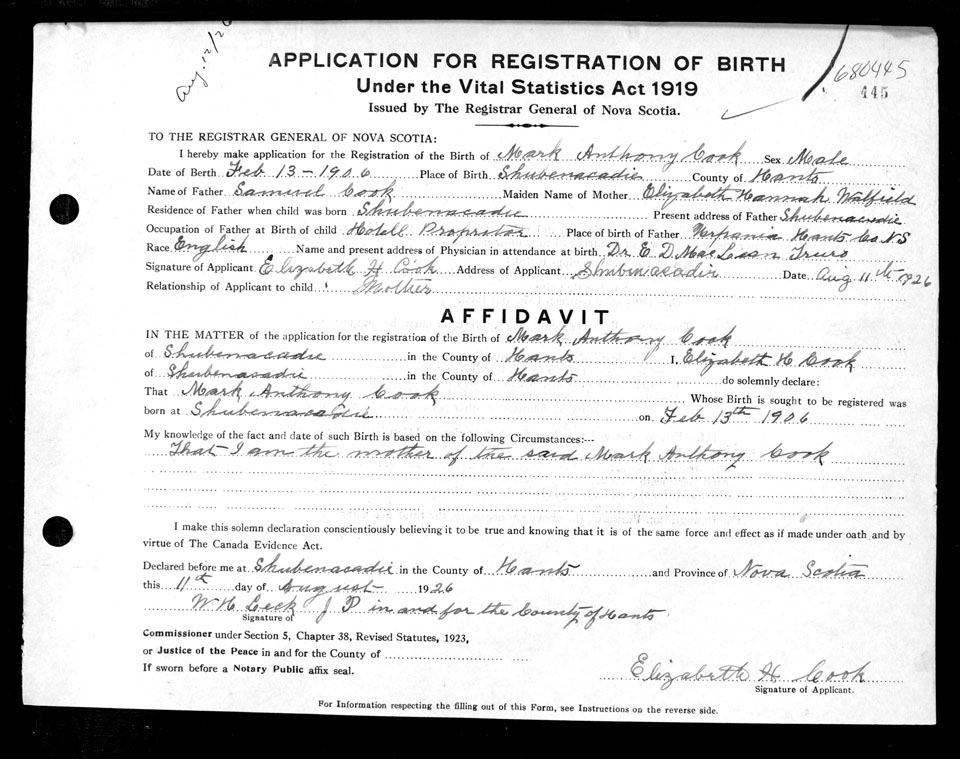 Aug. 12/26
680445
445
APPLICATION FOR REGISTRATION OF BIRTH
Under the Vital Statistics Act 1919
Issued by The Registrar General of Nova Scotia.
TO THE REGISTRAR GENERAL OF NOVA SCOTIA:
I hereby make application for the Registration of the Birth of Mark Anthony Cook Sex Male
Date of Birth Feb 13 - 1906 Place of Birth Shubenacadie County of Hants
Name of Father Samuel Cook Maiden Name of Mother Elizabeth Hannah
Residence of Father when child was born Shubenacadie Present address of Father Shubenacadie
Occupation of Father at Birth of child Hotell Place of birth of Father Hants Co NS
Race English Name and present address of Physician in attendance at birth Dr. E D. MacLean Truro
Signature of Applicant Elizabeth H Cook Address of Applicant Shubenacadie Date Aug 11th 1926
Relationship of Applicant to child Mother
AFFIDAVIT
IN THE MATTER of the application for the registration of the Birth of Mark Anthony Cook
of Shubenacadie in the County of Hants I, Elizabeth H Cook
of Shubenacadie in the County of Hants do solemnly declare:
That Mark Anthony Cook Whose Birth is sought to be registered was
born at Shubenacadie on Feb 13th 1906
My knowledge of the fact and date of such Birth is based on the following Circumstances:--
That I am the mother of the said Mark Anthony Cook
I make this solemn declaration conscientiously believing it to be true and knowing that it is of the same force and effect as if made under oath and by
virtue of The Canada Evidence Act.
Declared before me at Shubenacadie in the County of Hants and Province of Nova Scotia
this 11th day of August 1926
W H Leck J P in and for the County of Hants
Signature of
Commissioner under Section 5, Chapter 38, Revised Statutes, 1923,
or Justice of the Peace in and for the County of
If sworn before a Notary Public affix seal.
Elizabeth H Cook
Signature of Applicant.
For Information respecting the filling out of this Form, see Instructions on the reverse side.